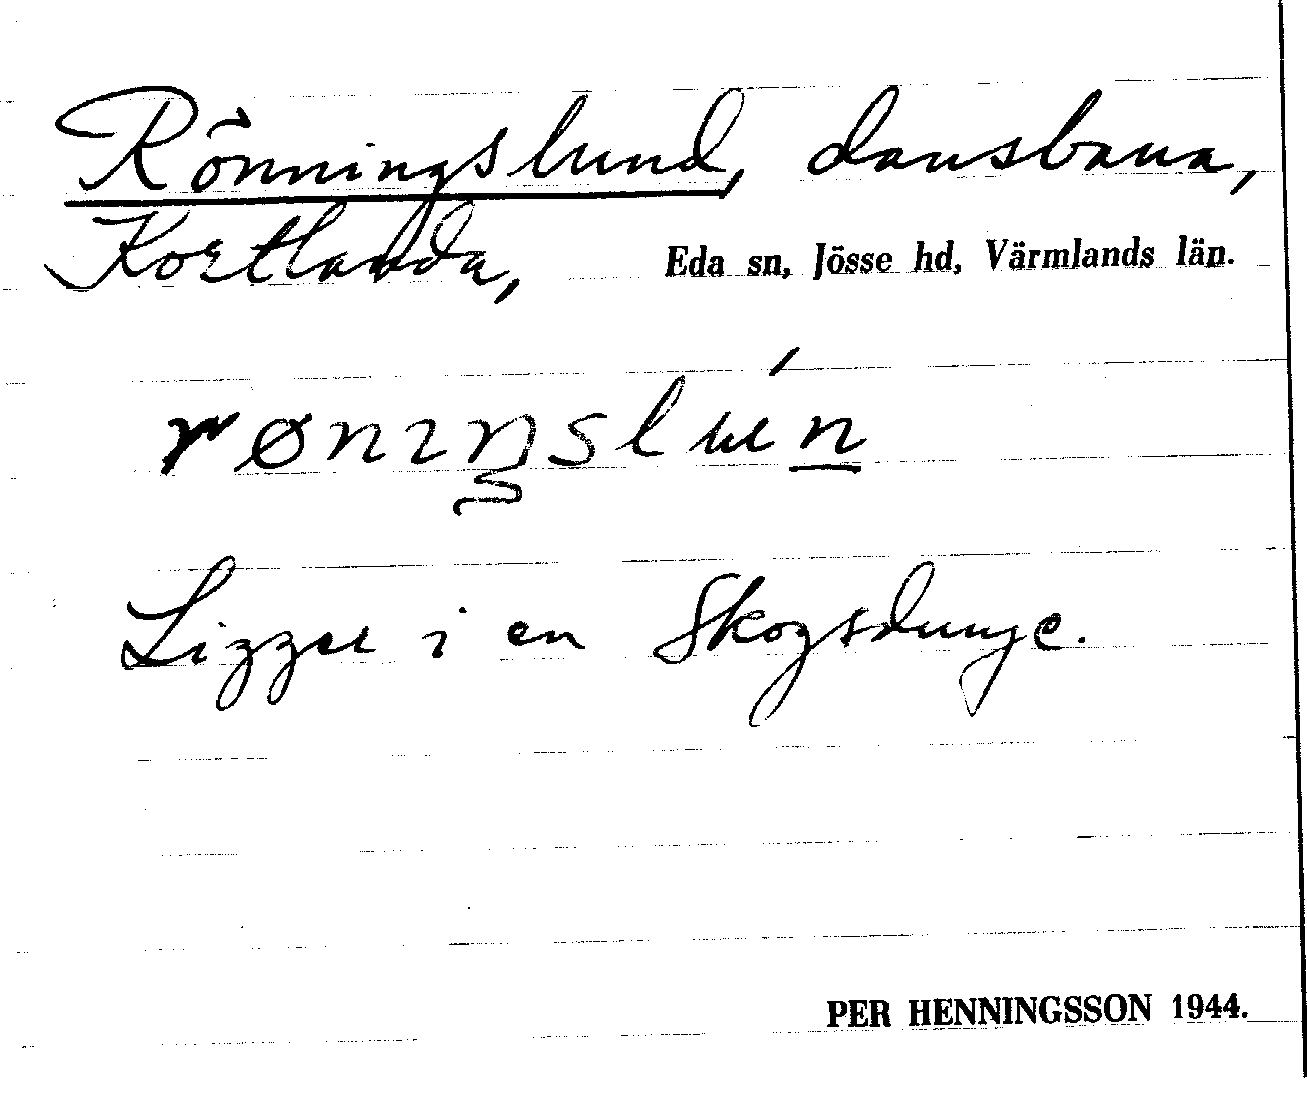 Rönningslund, dansbana,
Kortlanda, Eda sn, Jösse hd, Värmlands län.
Ligger i en skogsdunge.
PER HENNINGSSON 1944.